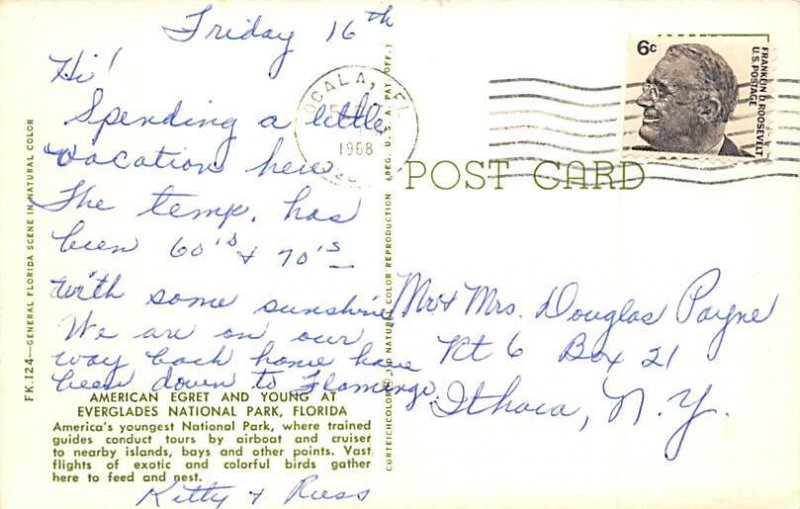 Friday 16th
Hi!
Spending a little
vacation here.
The temp. has
been 60's & 70's
with some sunshine
We are on our
way back home have
been down to Flamingo.
Kitty & Russ
AMERICAN EGRET AND YOUNG AT
EVERGLADES NATIONAL PARK, FLORIDA
America's youngest National Park, where trained
guides conduct tours by airboat and cruiser
to nearby islands, bays and other points. Vast
flights of exotic and colorful birds gather
here to feed and nest.
FK.124—GENERAL FLORIDA SCENE IN NATURAL COLOR
CURTEICHCOLOR NATURAL COLOR REPRODUCTION (REG. U.S.A. PAT. OFF.)
OCALA, FL
1968
6c
FRANKLIN D. ROOSEVELT
U.S. POSTAGE
POST CARD
Mr & Mrs. Douglas Payne
Rt 6 Box 21
Ithaca, N.Y.